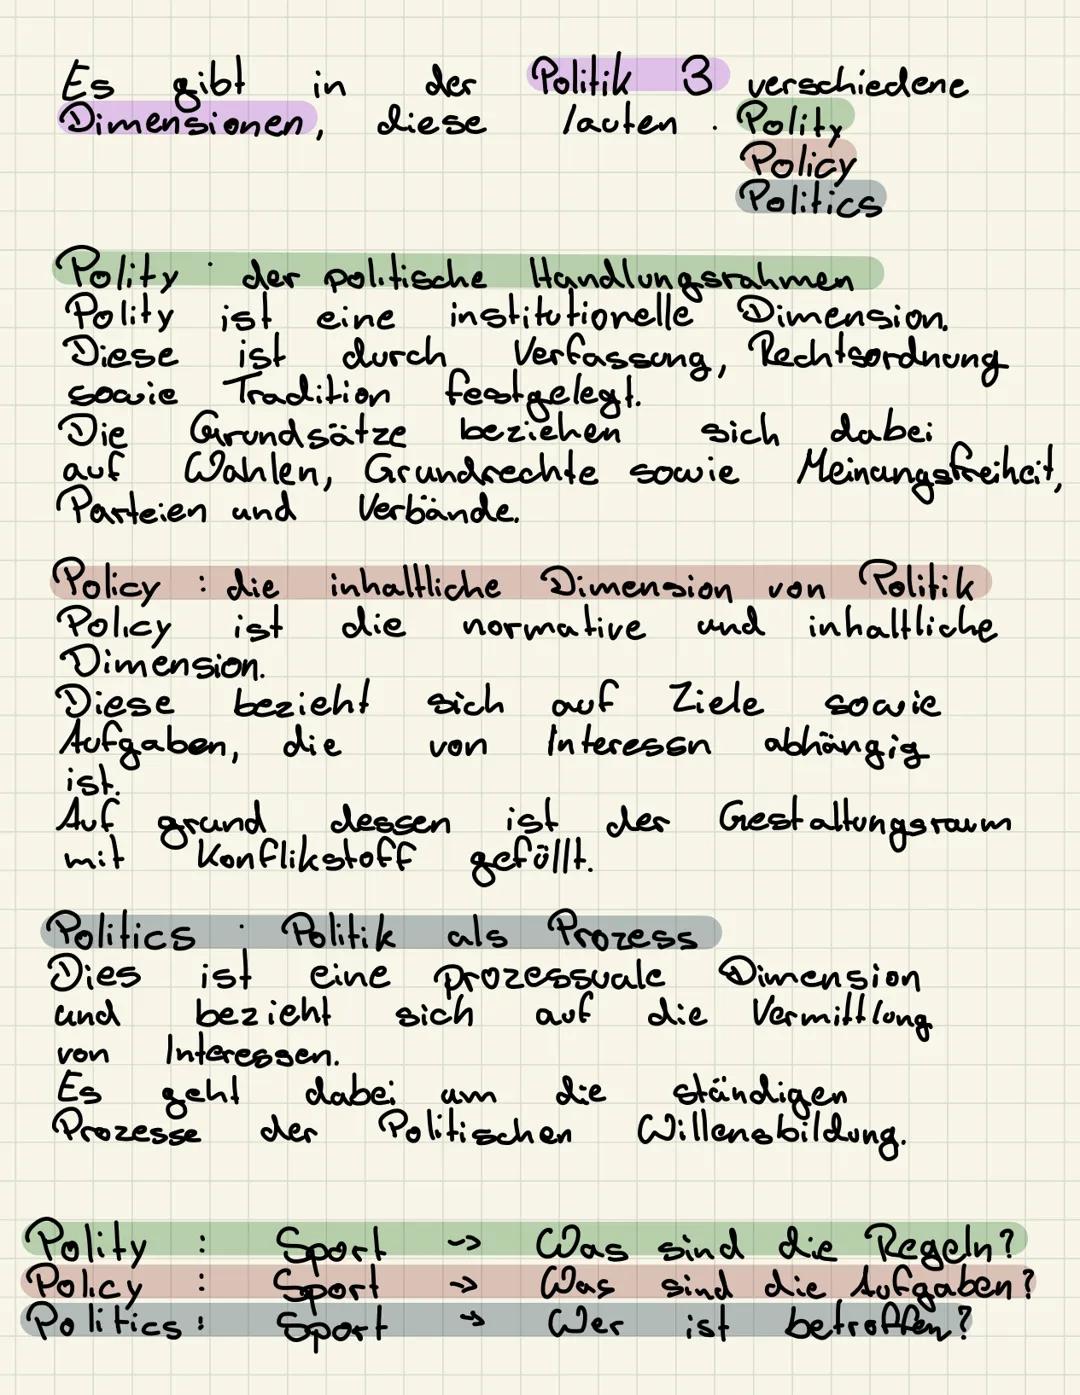 Es gibt in der Politik 3 verschiedene
Dimensionen, diese lauten : Polity
Policy
Politics
Polity : der politische Handlungsrahmen
Polity ist eine institutionelle Dimension.
Diese ist durch Verfassung, Rechtsordnung
sowie Tradition festgelegt.
Die Grundsätze beziehen sich dabei
auf Wahlen, Grundrechte sowie Meinungsfreiheit,
Parteien und Verbände.
Policy : die inhaltliche Dimension von Politik
Policy ist die normative und inhaltliche
Dimension.
Diese bezieht sich auf Ziele sowie
Aufgaben, die von Interessn abhängig
ist.
Auf grund dessen ist der Gestaltungsraum
mit Konflikstoff gefüllt.
Politics : Politik als Prozess
Dies ist eine prozessuale Dimension
und bezieht sich auf die Vermittlung
von Interessen.
Es geht dabei um die ständigen
Prozesse der Politischen Willensbildung.
Polity : Sport -> Was sind die Regeln?
Policy : Sport -> Was sind die Aufgaben?
Politics : Sport -> Wer ist betroffen?